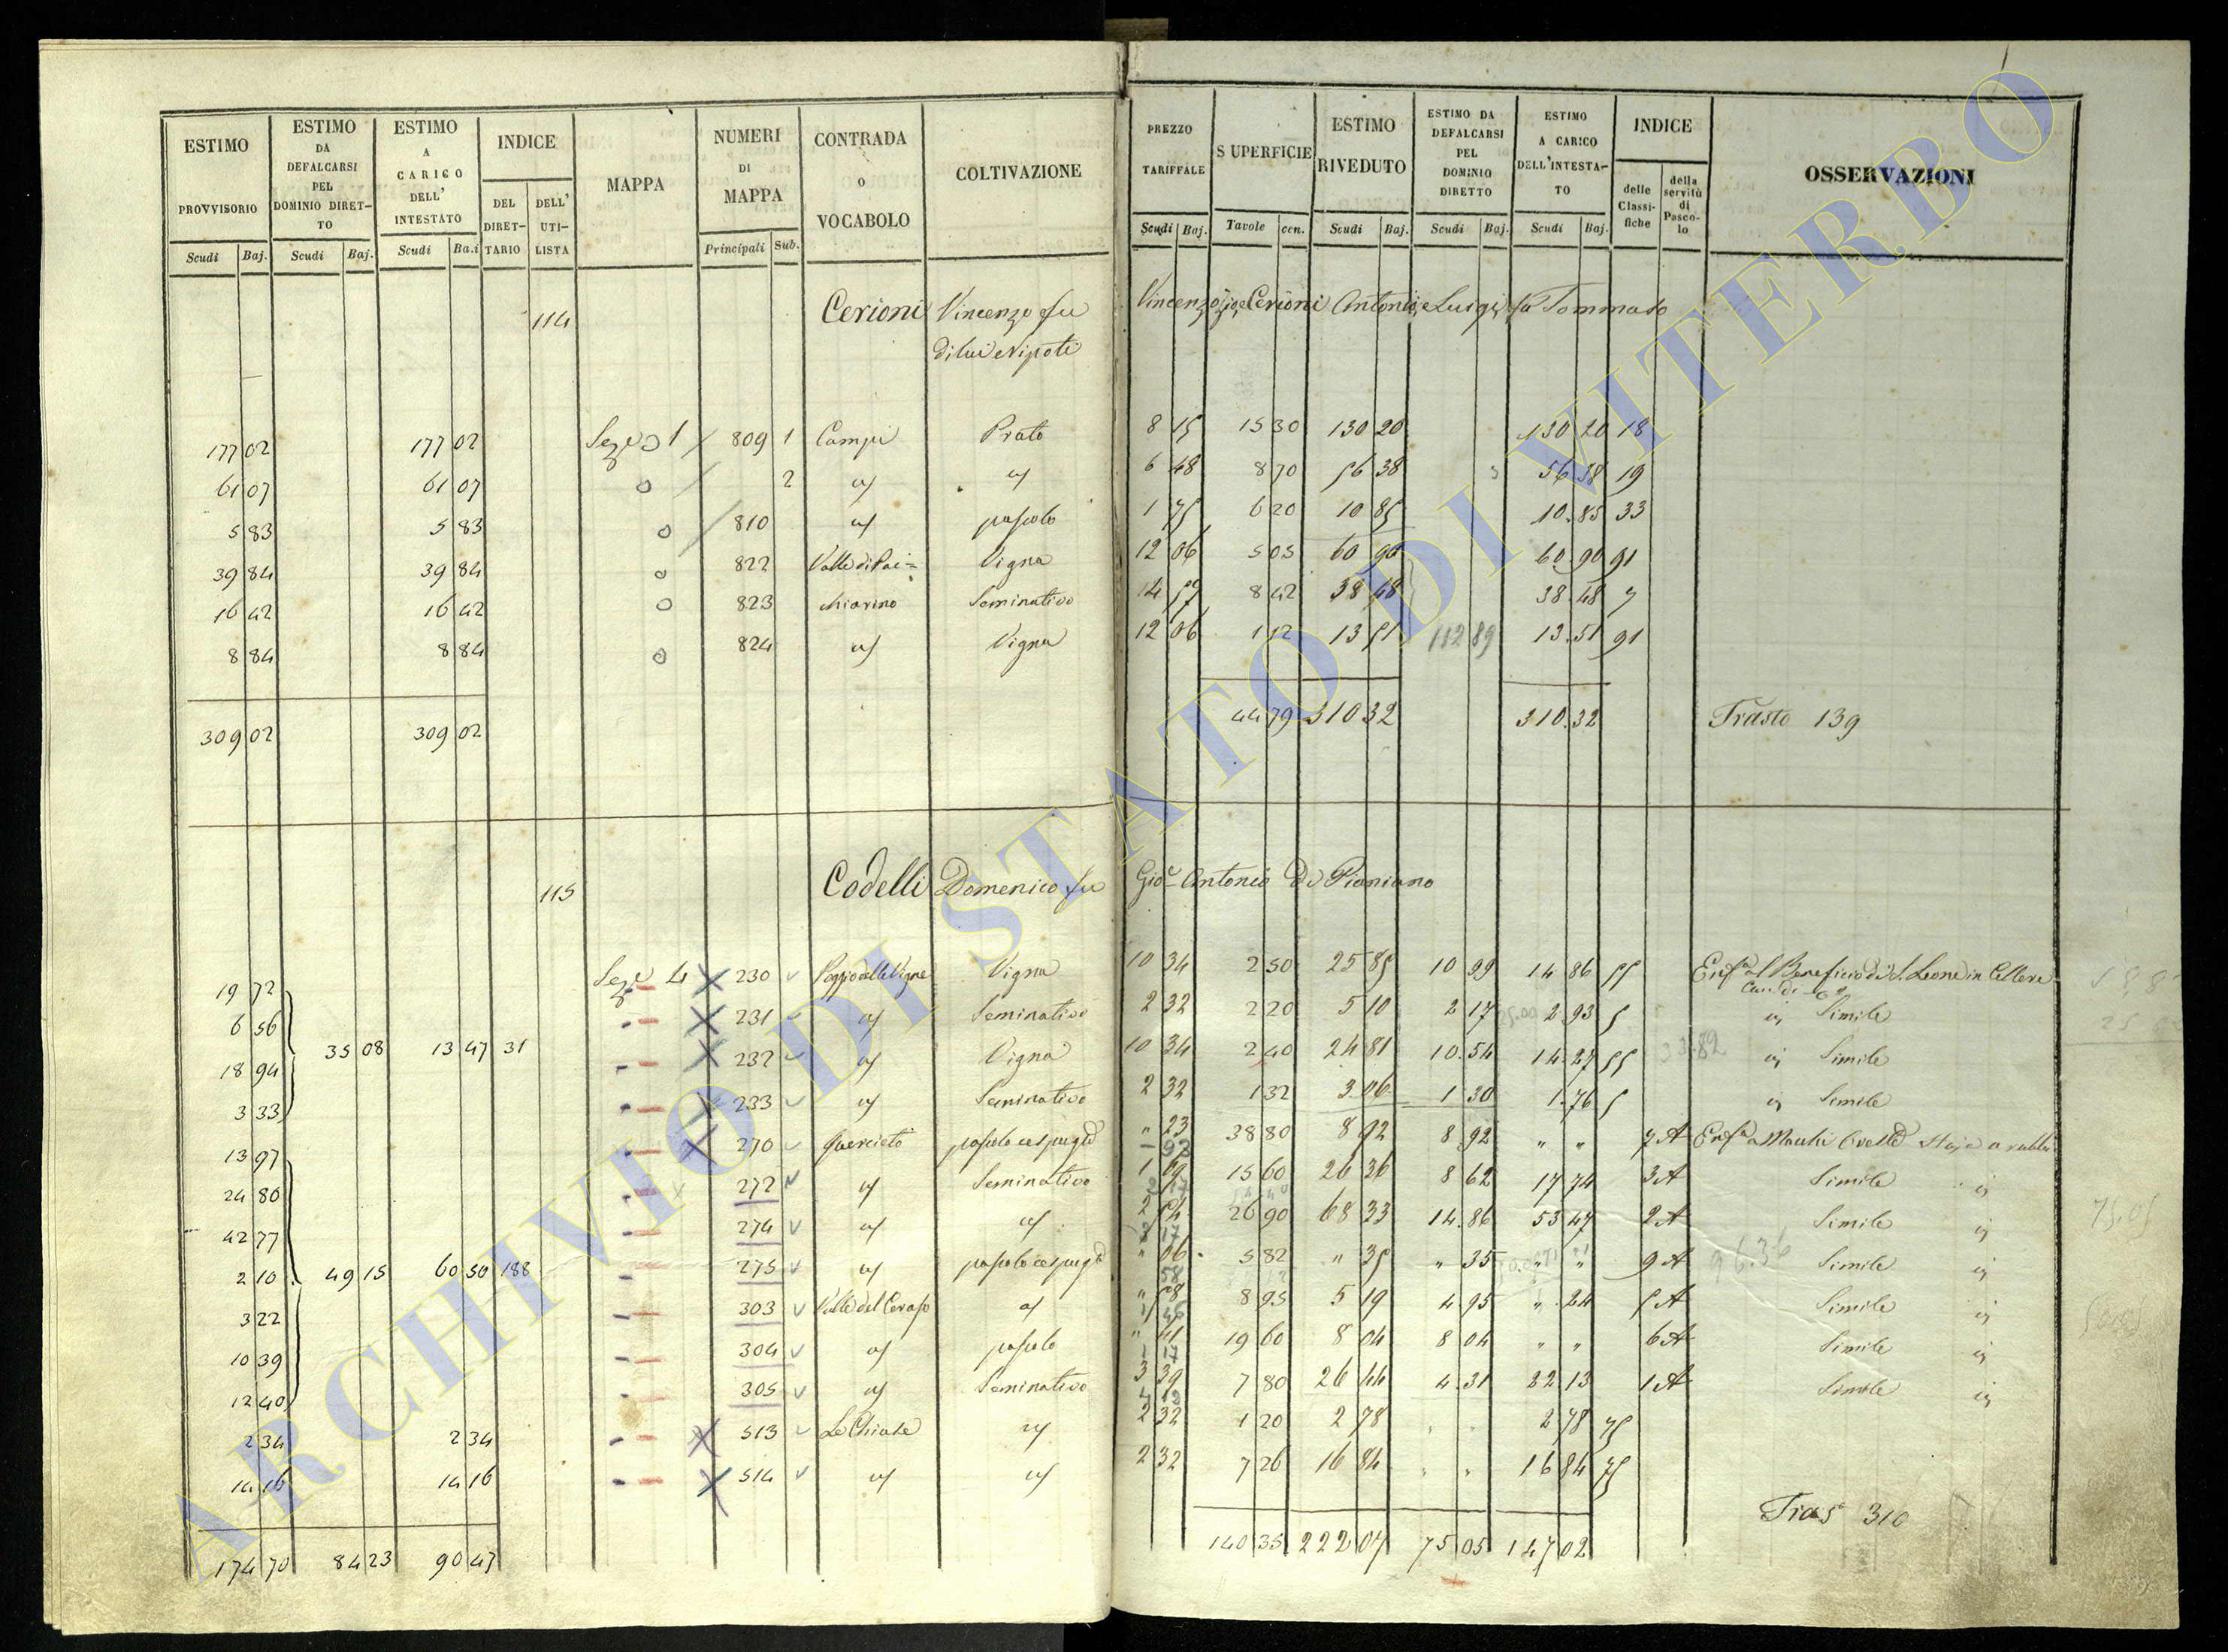 ESTIMO PROVVISORIO | ESTIMO DA DEFALCARSI PEL DOMINIO DIRETTO | ESTIMO A CARICO DELL' INTESTATO | INDICE | MAPPA | NUMERI DI MAPPA | CONTRADA O VOCABOLO | COLTIVAZIONE | PREZZO TARIFFALE | SUPERFICIE | ESTIMO RIVEDUTO | ESTIMO DA DEFALCARSI PEL DOMINIO DIRETTO | ESTIMO A CARICO DELL'INTESTATO | INDICE | OSSERVAZIONI
DEL DIRETTARIO | DELL' UTILISTA | delle Classifiche | della servitù di Pascolo
Scudi | Baj. | Scudi | Baj. | Scudi | Ba.i | Principali | Sub. | Scudi | Baj. | Tavole | cen. | Scudi | Baj. | Scudi | Baj. | Scudi | Baj.
114 Cerioni Vincenzo fu Vincenzo Cerioni Antonio, e Luigi fu Tommaso
di lui Nipoti
177 02 177 02 1 809 1 Campi Prato 8 15 15 30 130 20 130 20 18
61 07 61 07 2 6 48 8 70 56 38 56 38 19
5 83 5 83 810 pascolo 1 75 6 20 10 85 10.85 33
39 84 39 84 822 Valle di Vigna 12 06 5 05 60 90 60 90 91
16 42 16 42 823 chiarino Seminativo 14 57 8 42 38 48 38.48 7
8 84 8 84 824 Vigna 12 06 1 12 13 51 112 89 13.51 91
309 02 309 02 44 79 310 32 310.32 Trasto 139
115 Codelli Domenico fu Gio. Antonio Di Pianiano
19 72 4 230 Poggio delle Vigne Vigna 10 34 2 50 25 85 10 99 14 86 55 al Beneficio di S. Leone in Cellere
6 56 231 Seminativo 2 32 2 20 5 10 2 17 2 93 5 Simile
35 08 13 47 31
18 94 232 Vigna 10 34 2 40 24 81 10.54 14.27 55 Simile
3 33 233 Seminativo 2 32 1 32 3 06 1 30 1.76 5 Simile
13 97 270 Querceto pascolo 23 38 80 8 92 8 92 " " 7 A
24 80 272 Seminativo 1 69 15 60 26 36 8 62 17 74 3 A Simile
42 77 274 2 54 26 90 68 33 14.86 53 47 2 A Simile
2 10 49 15 60 50 188 275 pascolo " 06 5 82 " 35 " 35 " " 9 A 96.36 Simile
3 22 303 Valle del Ceraso " 58 8 95 5 19 4 95 " 24 5 A Simile
10 39 304 pascolo " 41 19 60 8 04 8 04 " " 6 A Simile
12 40 305 Seminativo 3 39 7 80 26 44 4.31 22 13 1 A Simile
2 34 2 34 513 Le Chiuse 2 32 1 20 2 78 2 78 75
14 16 14 16 514 2 32 7 26 16 84 16 84 75
Tras 310
174 70 84 23 90 47 140 35 222 07 75 05 147 02
ARCHIVIO DI STATO DI VITERBO